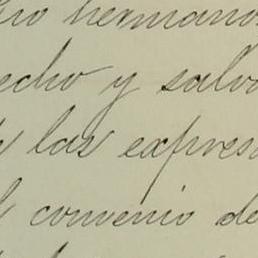 hermanos
echo y salvo
las expres
convenio de